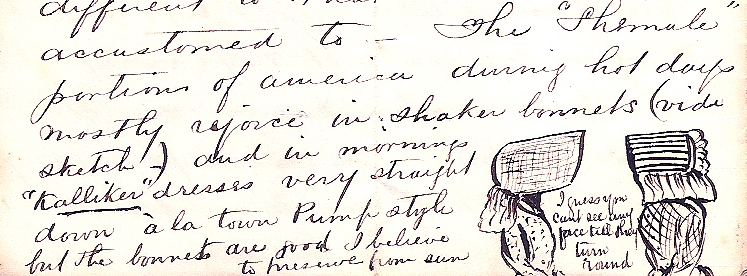 different to
accustomed to — The "Shemale"
portions of america during hot days
mostly rejoice in shaker bonnets (vide
sketch) and in mornings
"Kalliker" dresses very straight
down à la town Pump style
but the bonnets are good I believe
to preserve from sun
I guess you
cant see any
face till they
turn
round